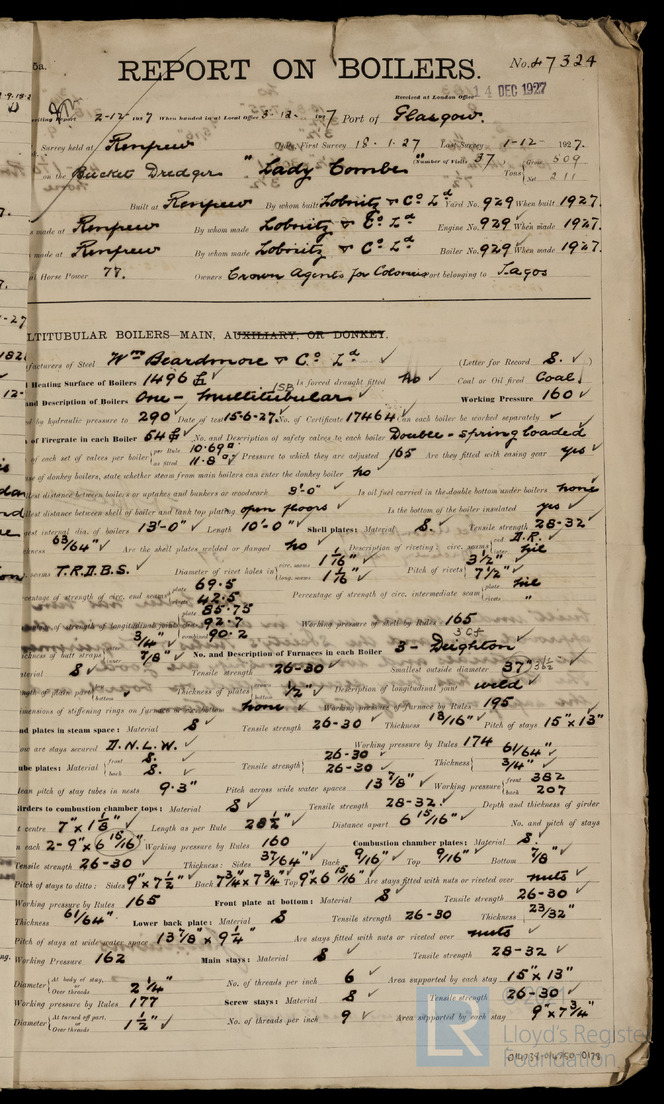 5a.
REPORT ON BOILERS.
No. 47324
Received at London Office 14 DEC 1927
writing Report 2-12-1927 When handed in at Local Office 3-12-1927 Port of Glasgow.
Survey held at Renfrew Date, First Survey 18.1.27 Last Survey 1-12-1927.
on the Bucket Dredger "Lady Combe" (Number of Visits 37) Tons Gross 509 Net 211
Built at Renfrew By whom built Lobnitz & Co Ld Yard No. 929 When built 1927.
s made at Renfrew By whom made Lobnitz & Co Ld Engine No. 929 When made 1927.
s made at Renfrew By whom made Lobnitz & Co Ld Boiler No. 929 When made 1927.
al Horse Power 77. Owners Crown Agents for Colonies Port belonging to Lagos
LTITUBULAR BOILERS—MAIN, AUXILIARY, OR DONKEY.
facturers of Steel Wm Beardmore & Co Ld ✓ (Letter for Record S. ✓)
l Heating Surface of Boilers 1496 ✓ Is forced draught fitted no ✓ Coal or Oil fired Coal ✓
and Description of Boilers One - Multitubular 1SB ✓ Working Pressure 160 ✓
d by hydraulic pressure to 290 Date of test 15-6-27 No. of Certificate 17464 Can each boiler be worked separately ✓
of Firegrate in each Boiler 54 No. and Description of safety valves to each boiler Double - spring loaded
of each set of valves per boiler per Rule 10.69 as fitted 11.8 Pressure to which they are adjusted 165 Are they fitted with easing gear yes ✓
se of donkey boilers, state whether steam from main boilers can enter the donkey boiler no
llest distance between boilers or uptakes and bunkers or woodwork 3'-0" Is oil fuel carried in the double bottom under boilers none
llest distance between shell of boiler and tank top plating open floors ✓ Is the bottom of the boiler insulated yes
est internal dia. of boilers 13'-0" ✓ Length 10'-0" ✓ Shell plates: Material S ✓ Tensile strength 28-32 ✓
ckness 63/64" ✓ Are the shell plates welded or flanged no ✓ Description of riveting: circ. seams end D.R. ✓ inter nil
seams T.R.D.B.S. Diameter of rivet holes in circ. seams 1 1/16" ✓ long. seams 1 1/16" ✓ Pitch of rivets 3 1/2" ✓ 7 1/2" ✓
centage of strength of circ. end seams plate 69.5 rivets 42.5 Percentage of strength of circ. intermediate seam plate nil rivets "
ge of strength of longitudinal joint plate 85.75 rivets 92.7 combined 90.2 Working pressure of shell by Rules 165
ckness of butt straps 3/4" ✓ 7/8" ✓ No. and Description of Furnaces in each Boiler 3 - Deighton ✓ 3Cf
aterial S ✓ Tensile strength 26-30 ✓ Smallest outside diameter 37
gth of plain part bottom Thickness of plates crown bottom 1/2" ✓ Description of longitudinal joint weld ✓
mensions of stiffening rings on furnace or c.c. bottom none ✓ Working pressure of furnace by Rules 195
nd plates in steam space: Material S ✓ Tensile strength 26-30 ✓ Thickness 13/16" ✓ Pitch of stays 15" x 13"
ow are stays secured D.N.L.W. ✓ Working pressure by Rules 174
ube plates: Material front S. ✓ back S. Tensile strength 26-30 26-30 ✓ Thickness 61/64" ✓ 3/4" ✓
lean pitch of stay tubes in nests 9.3" Pitch across wide water spaces 13 7/8" ✓ Working pressure front 382 back 207
irders to combustion chamber tops: Material S ✓ Tensile strength 28-32 ✓ Depth and thickness of girder
t centre 7" x 1 1/8" ✓ Length as per Rule 28 1/2" ✓ Distance apart 6 15/16" ✓ No. and pitch of stays
n each 2 - 9" x 6 15/16" Working pressure by Rules 160 Combustion chamber plates: Material S ✓
Tensile strength 26-30 ✓ Thickness: Sides 37/64" ✓ Back 9/16" ✓ Top 9/16" ✓ Bottom 7/8" ✓
Pitch of stays to ditto: Sides 9" x 7 1/2" ✓ Back 7 3/4" x 7 3/4" Top 9" x 6 15/16" Are stays fitted with nuts or riveted over nuts ✓
Working pressure by Rules 165 Front plate at bottom: Material S ✓ Tensile strength 26-30 ✓
Thickness 61/64" ✓ Lower back plate: Material S Tensile strength 26-30 Thickness 23/32" ✓
Pitch of stays at wide water space 13 7/8" x 9 1/4" ✓ Are stays fitted with nuts or riveted over nuts ✓
Working Pressure 162 Main stays: Material S ✓ Tensile strength 28-32 ✓
Diameter At body of stay, or Over threads 2 1/4" ✓ No. of threads per inch 6 ✓ Area supported by each stay 15" x 13"
Working pressure by Rules 177 Screw stays: Material S ✓ Tensile strength 26-30 ✓
Diameter At turned off part, or Over threads 1 1/2" ✓ No. of threads per inch 9 ✓ Area supported by each stay 9" x 7 3/4"
LR
Lloyd's Register
Foundation